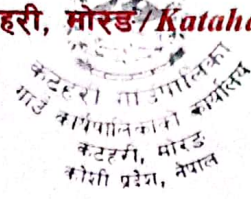 हरी, मोरङ/Kataha
कटहरी गाउँपालिका
गाउँ कार्यपालिकाको कार्यालय
कटहरी, मोरङ
कोशी प्रदेश, नेपाल